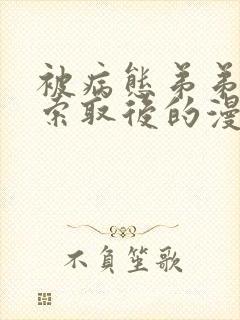 被病態弟弟
索取後的漫
不負笙歌